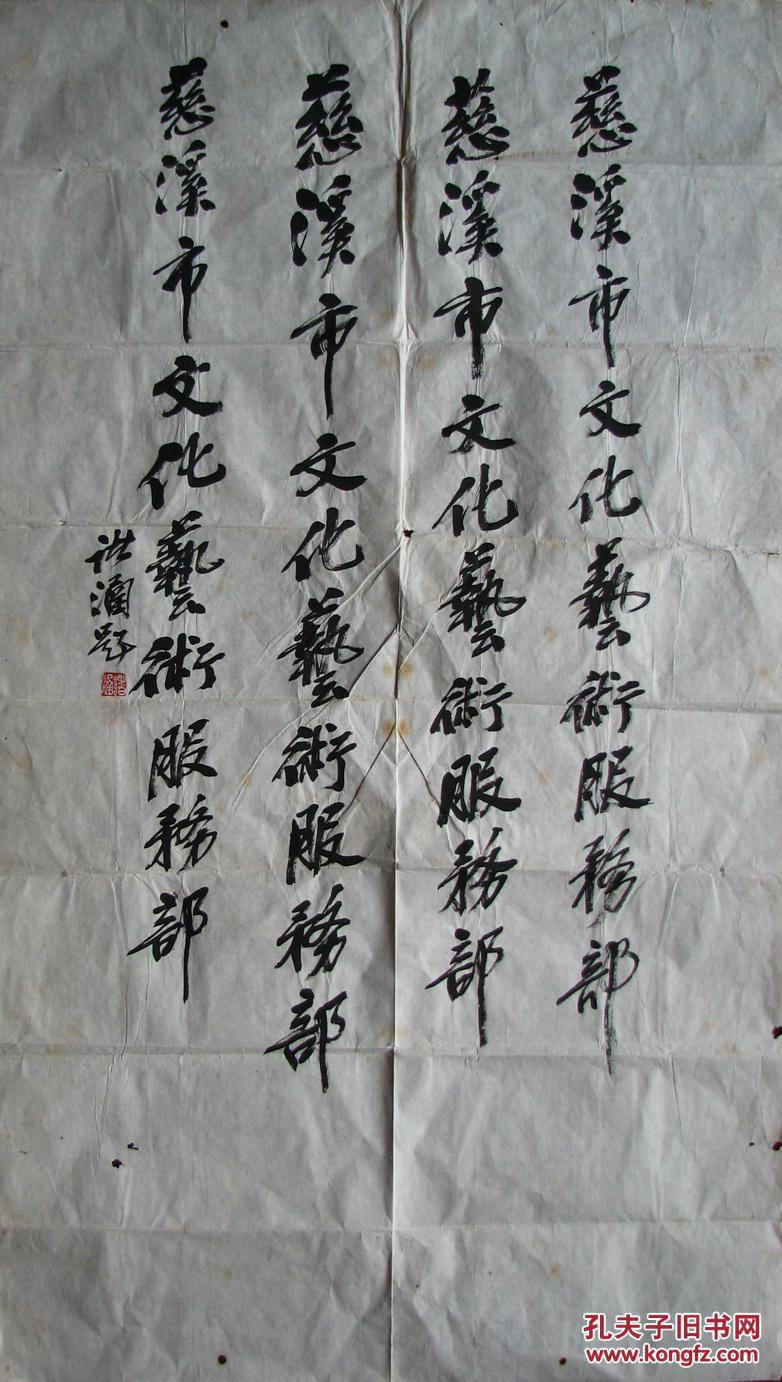 慈溪市文化藝術服務部
慈溪市文化藝術服務部
慈溪市文化藝術服務部
慈溪市文化藝術服務部
题
孔夫子旧书网
www.kongfz.com